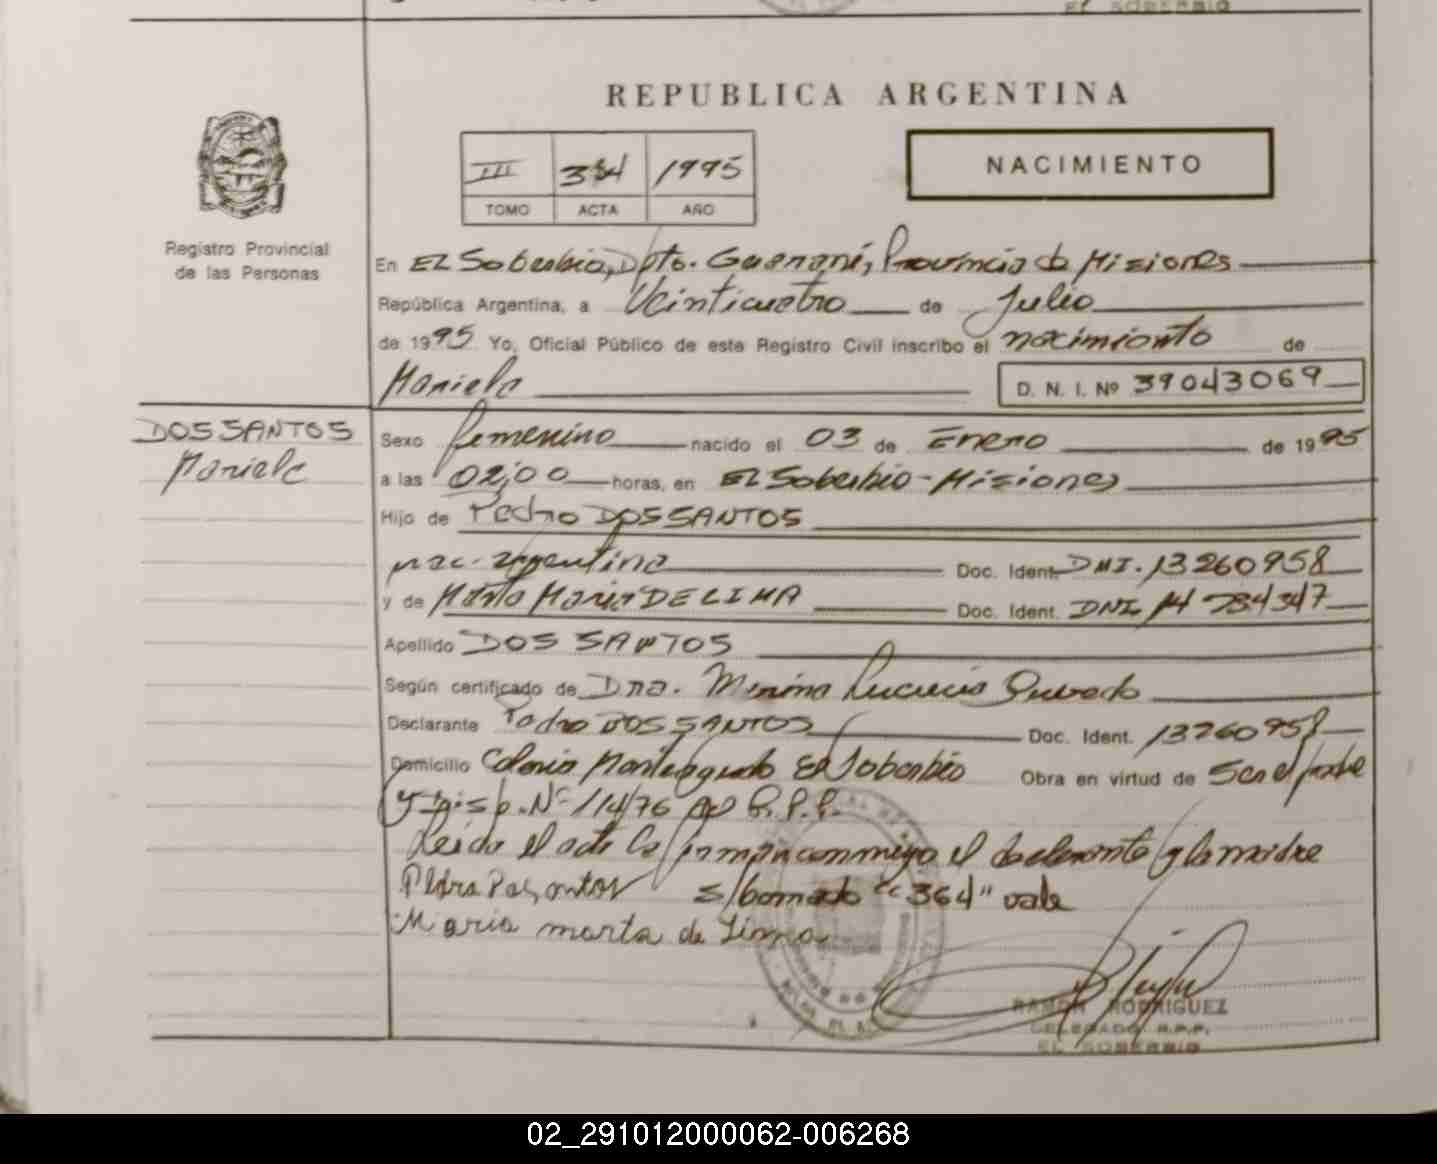 REPUBLICA ARGENTINA
III 1995
TOMO ACTA AÑO
NACIMIENTO
Registro Provincial
de las Personas
En EL Soberbio, Dpto. Guaraní, Provincia de Misiones
República Argentina, a Veinticuatro de Julio
de 1995 Yo, Oficial Público de este Registro Civil inscribo el nacimiento de
Mariela D. N. I. Nº 39043069
DOS SANTOS
Mariela
Sexo femenino nacido el 03 de Enero de 1995
a las 02,00 horas, en EL Soberbio - Misiones
Hijo de Pedro DOS SANTOS
nac. argentina Doc. Ident. DNI. 13260958
y de Marta Maria DE LIMA Doc. Ident. DNI 14 784347
Apellido DOS SANTOS
Según certificado de Dra. Lucrecia Quevedo
Declarante Pedro DOS SANTOS Doc. Ident. 13260958
Domicilio Colonia Monteagudo El Soberbio Obra en virtud de Ser el padre
y Disp. Nº 114/76 R.P.P.
Leida el acta la firman conmigo el declarante y la madre
s/borrado "364" vale
Maria marta de Lima
RAMON RODRIGUEZ
DELEGADO R.P.P.
EL SOBERBIO
02_291012000062-006268